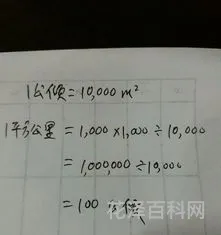 1公倾=10,000 m²
1平方公里 = 1,000×1,000÷10,000
= 1,000,000÷10,000
= 100公倾
花泽百科网